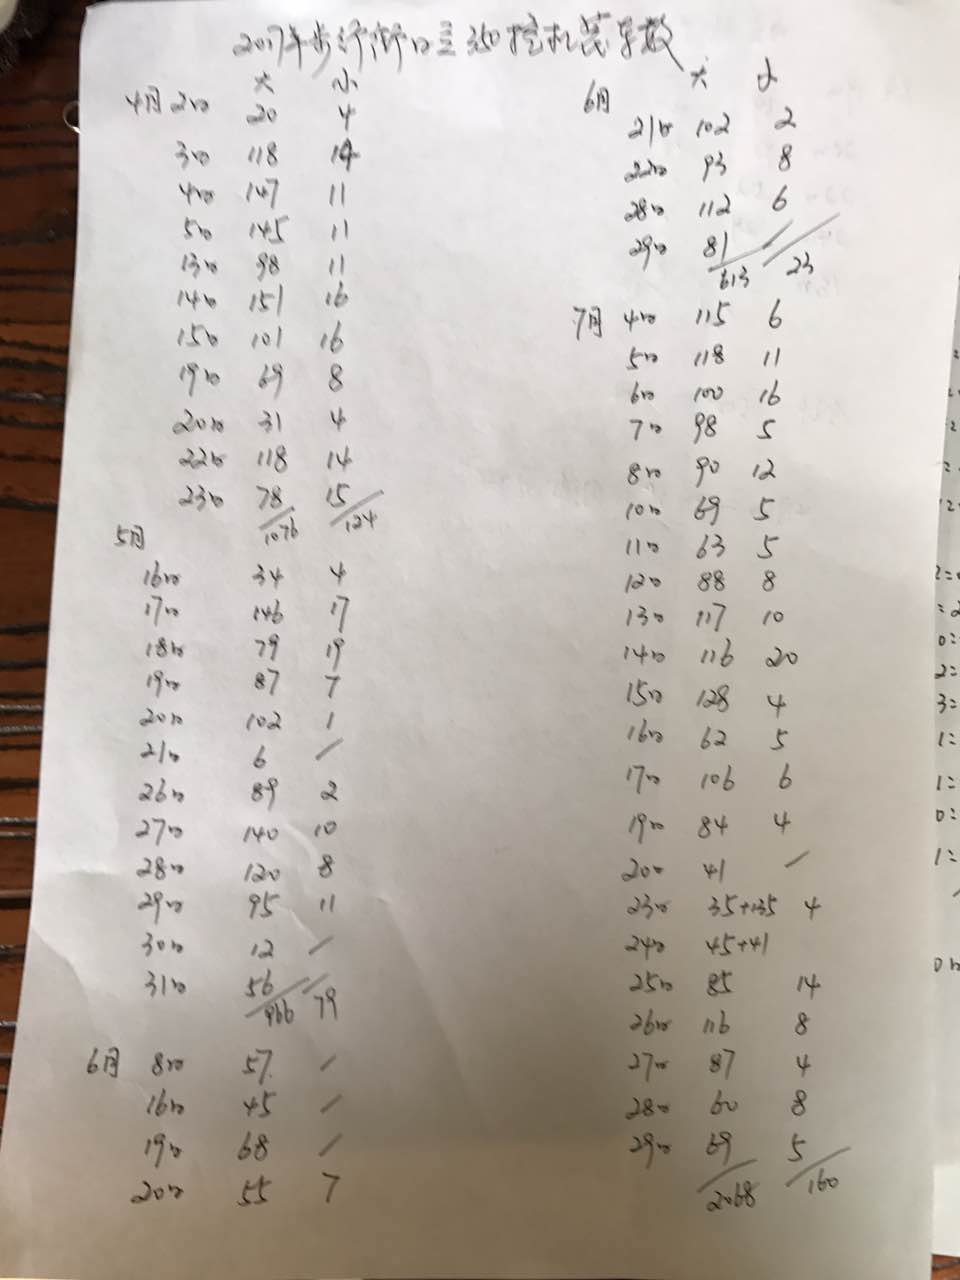 2017年步行街口三350挖机装车数
大 小
4月 2日 20 4
3日 118 14
4日 147 11
5日 145 11
13日 98 11
14日 151 16
15日 101 16
19日 69 8
20日 31 4
22日 118 14
23日 78 15
1076 124
5月
16日 34 4
17日 146 17
18日 79 19
19日 87 7
20日 102 1
21日 6 /
26日 89 2
27日 140 10
28日 120 8
29日 95 11
30日 12 /
31日 56 /
966 79
6月 8日 57 /
16日 45 /
19日 68 /
20日 55 7
6月 大 小
21日 102 2
22日 93 8
28日 112 6
29日 81 /
613 23
7月 4日 115 6
5日 118 11
6日 100 16
7日 98 5
8日 90 12
10日 69 5
11日 63 5
12日 88 8
13日 117 10
14日 116 20
15日 128 4
16日 62 5
17日 106 6
19日 84 4
20日 41 /
23日 35+135 4
24日 45+41
25日 85 14
26日 116 8
27日 87 4
28日 60 8
29日 69 5
2068 160